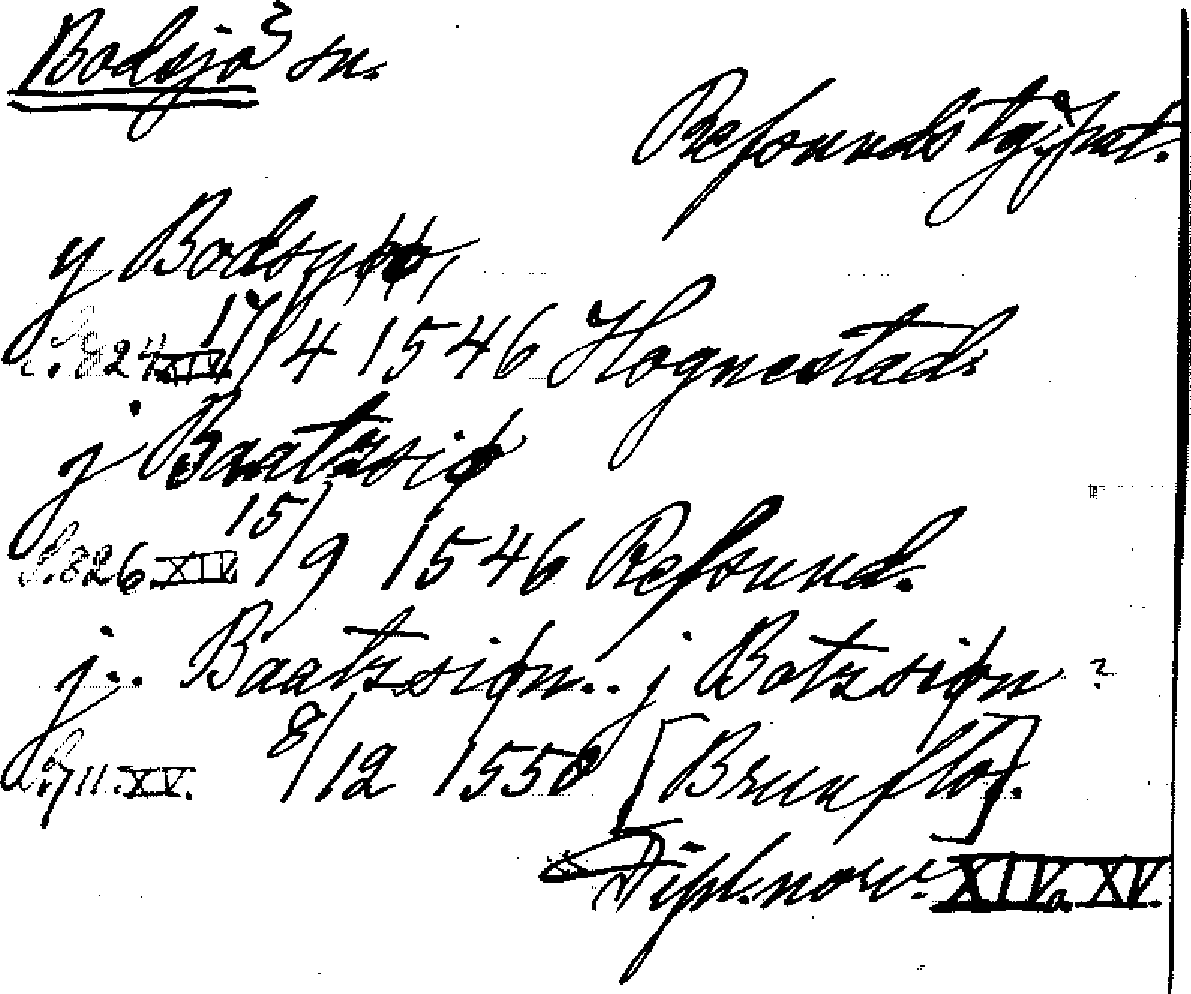 Bodsjö sn.
Refsunds tg. Jmt.
y Bodsyøø,
S. 824 XIV. 17/4 1546 Hognestad.
j Baatzsiø
S. 826 XIV. 15/9 1546 Refsund.
j.. Baatzsiøn.. j Botzsiøn ?
S. 711. XV. 8/12 1550 [Brunflo].
Dipl. norv. XIV a. XV.